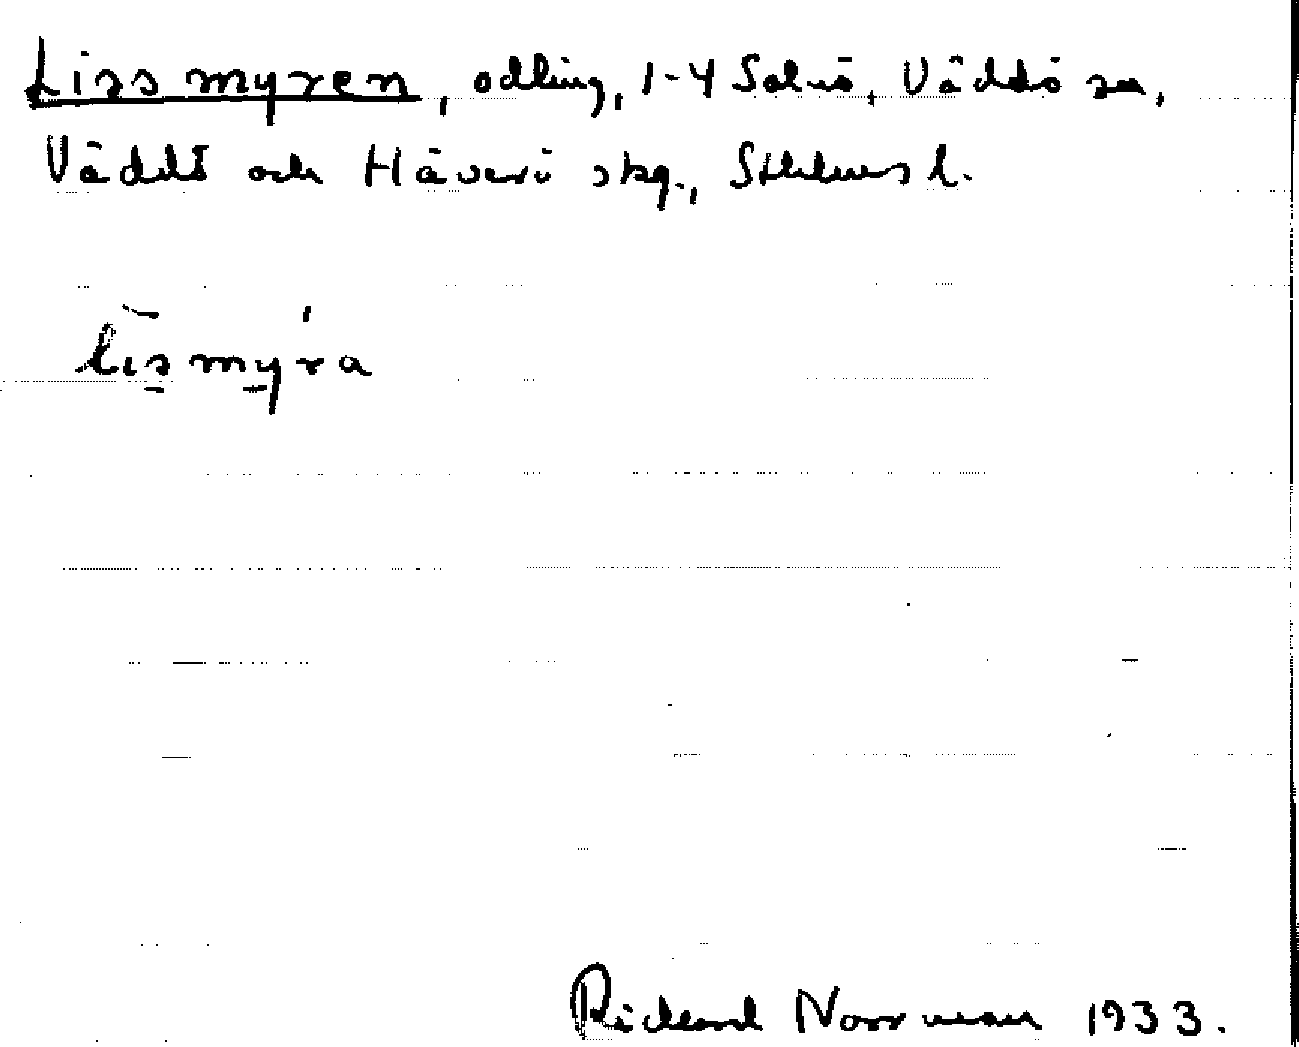 Lissmyren, odling, 1-4 Solvö, Väddö sn,
Väddö och Häverö skg., Sthlms l.
lismyra
Richard Norrman 1933.